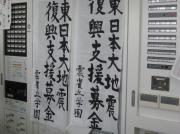 東日本大地震
復興支援募金
東日本大地震
復興支援募金